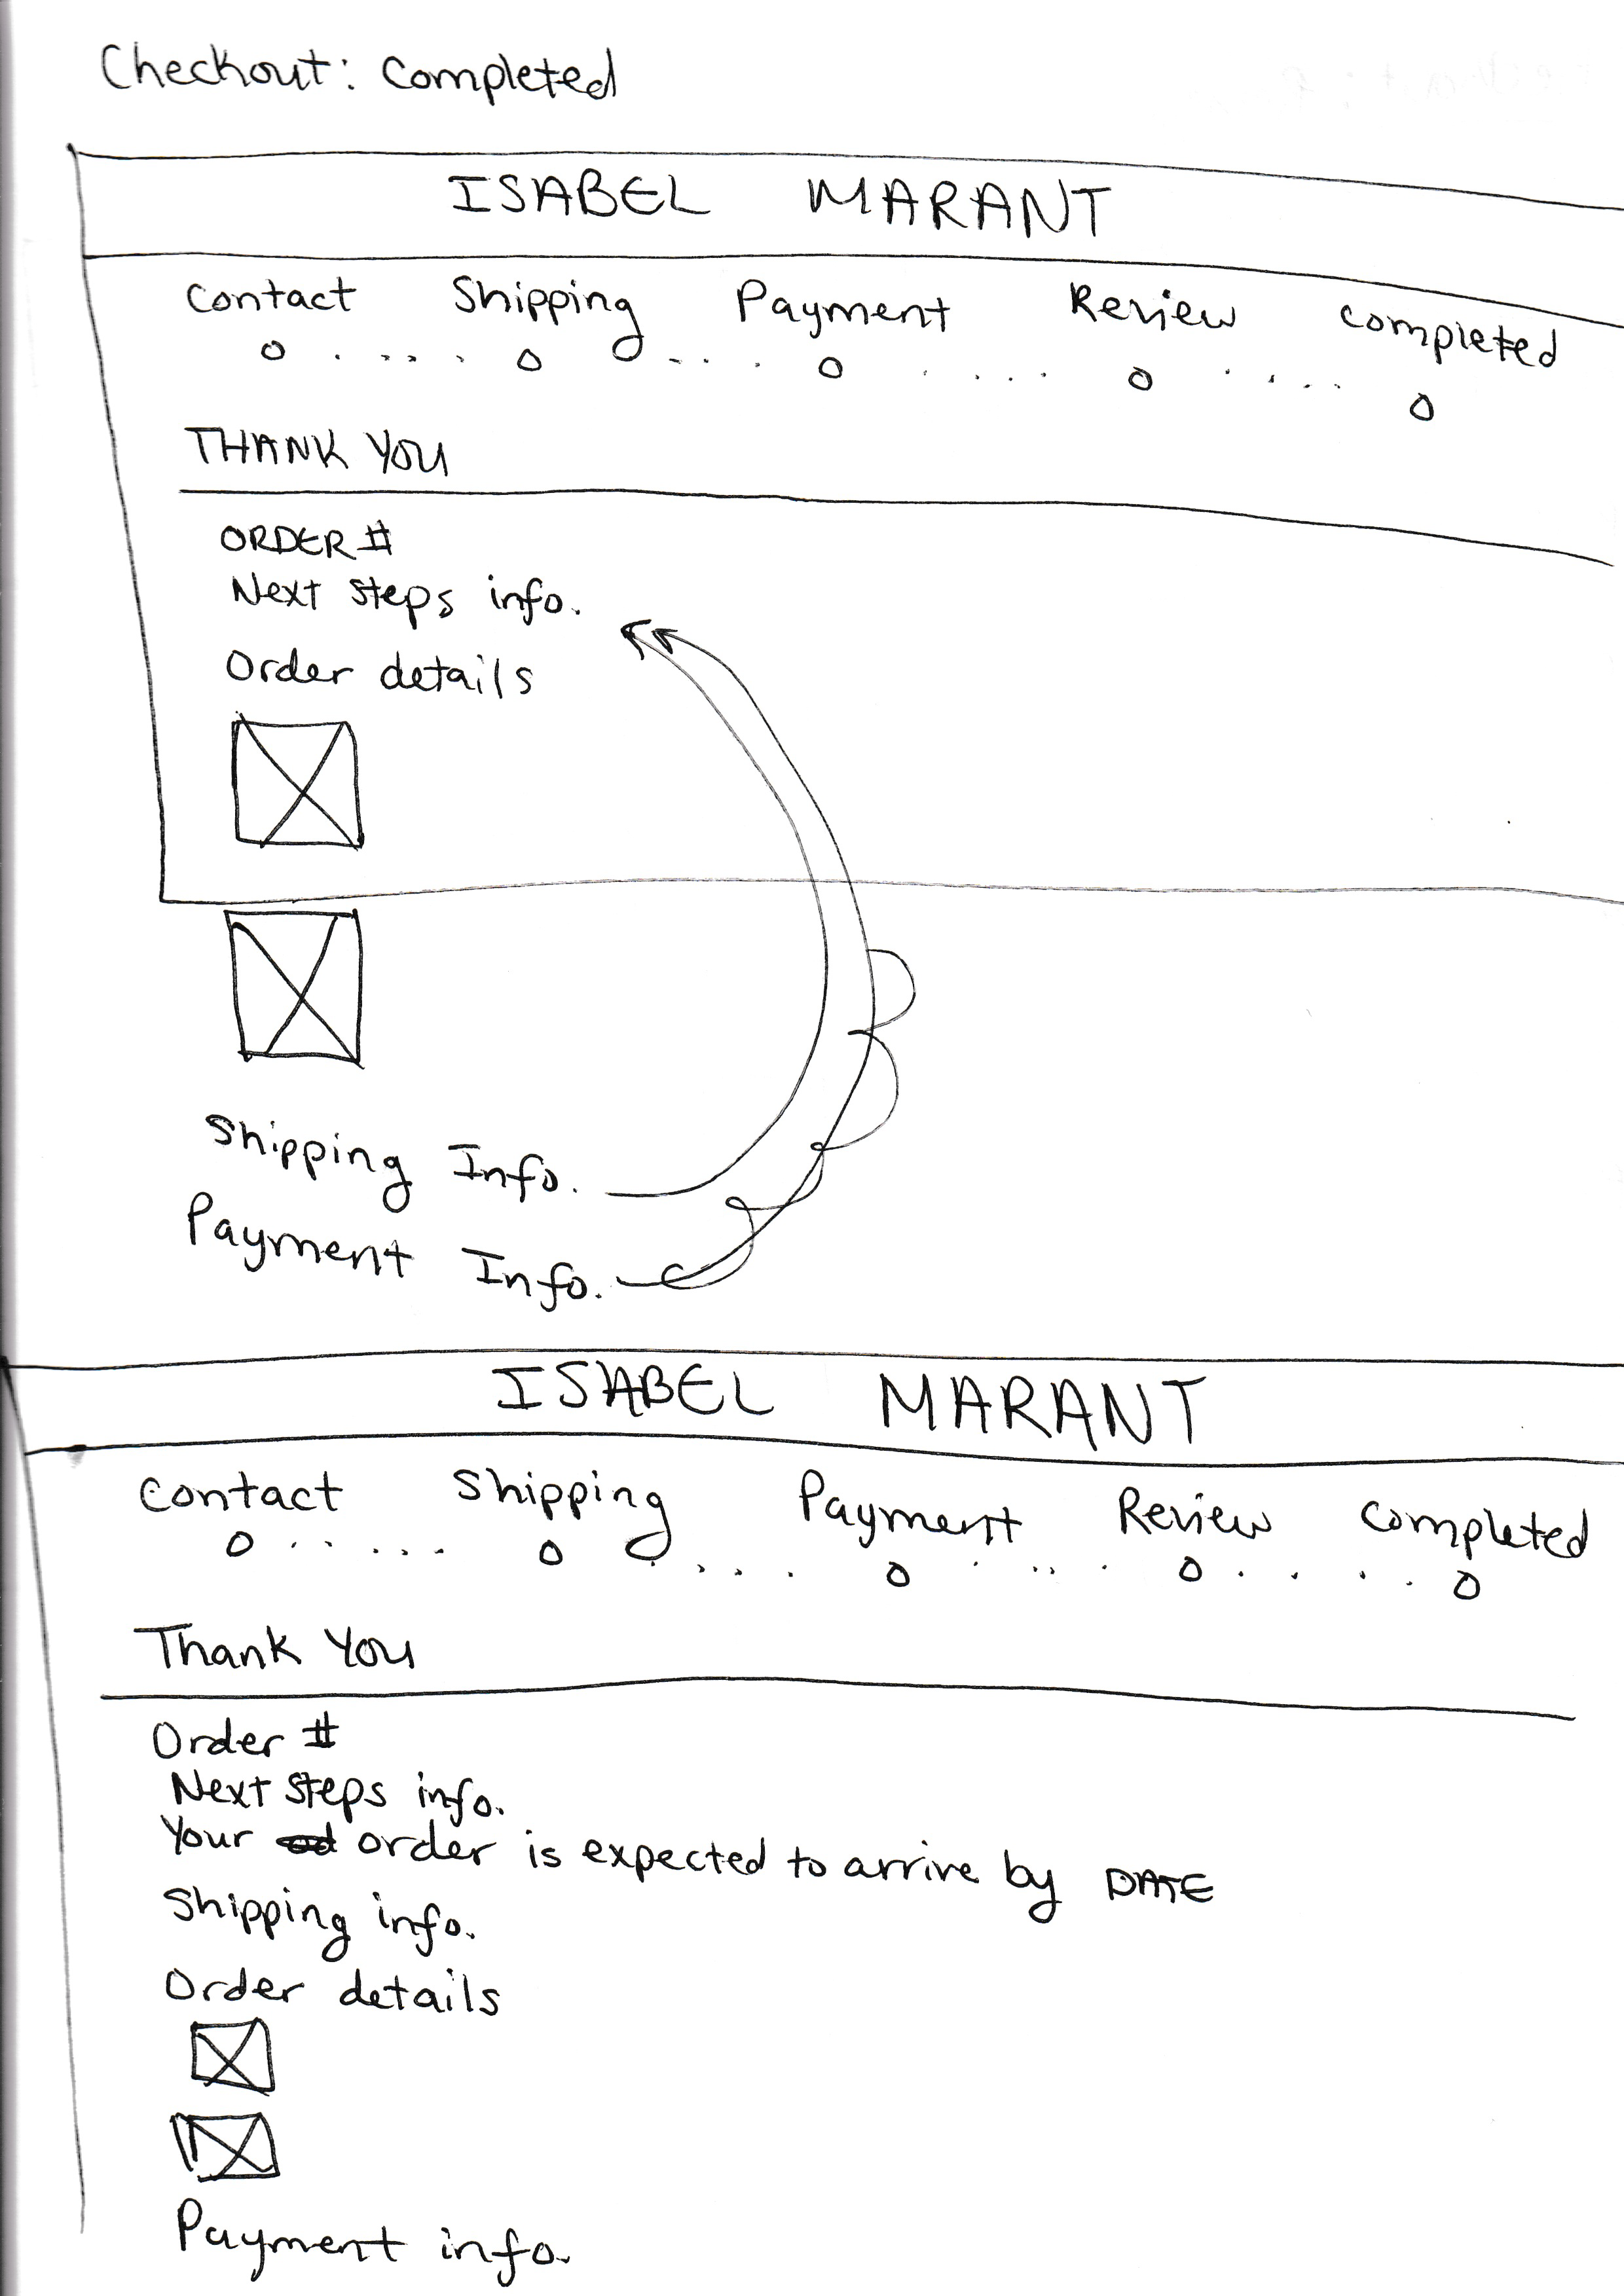 Checkout: Completed
ISABEL MARANT
Contact Shipping Payment Review Completed
THANK YOU
ORDER #
Next steps info.
Order details
Shipping Info.
Payment Info.
ISABEL MARANT
Contact Shipping Payment Review Completed
Thank You
Order #
Next steps info.
Your order is expected to arrive by DATE
Shipping info.
Order details
Payment info.